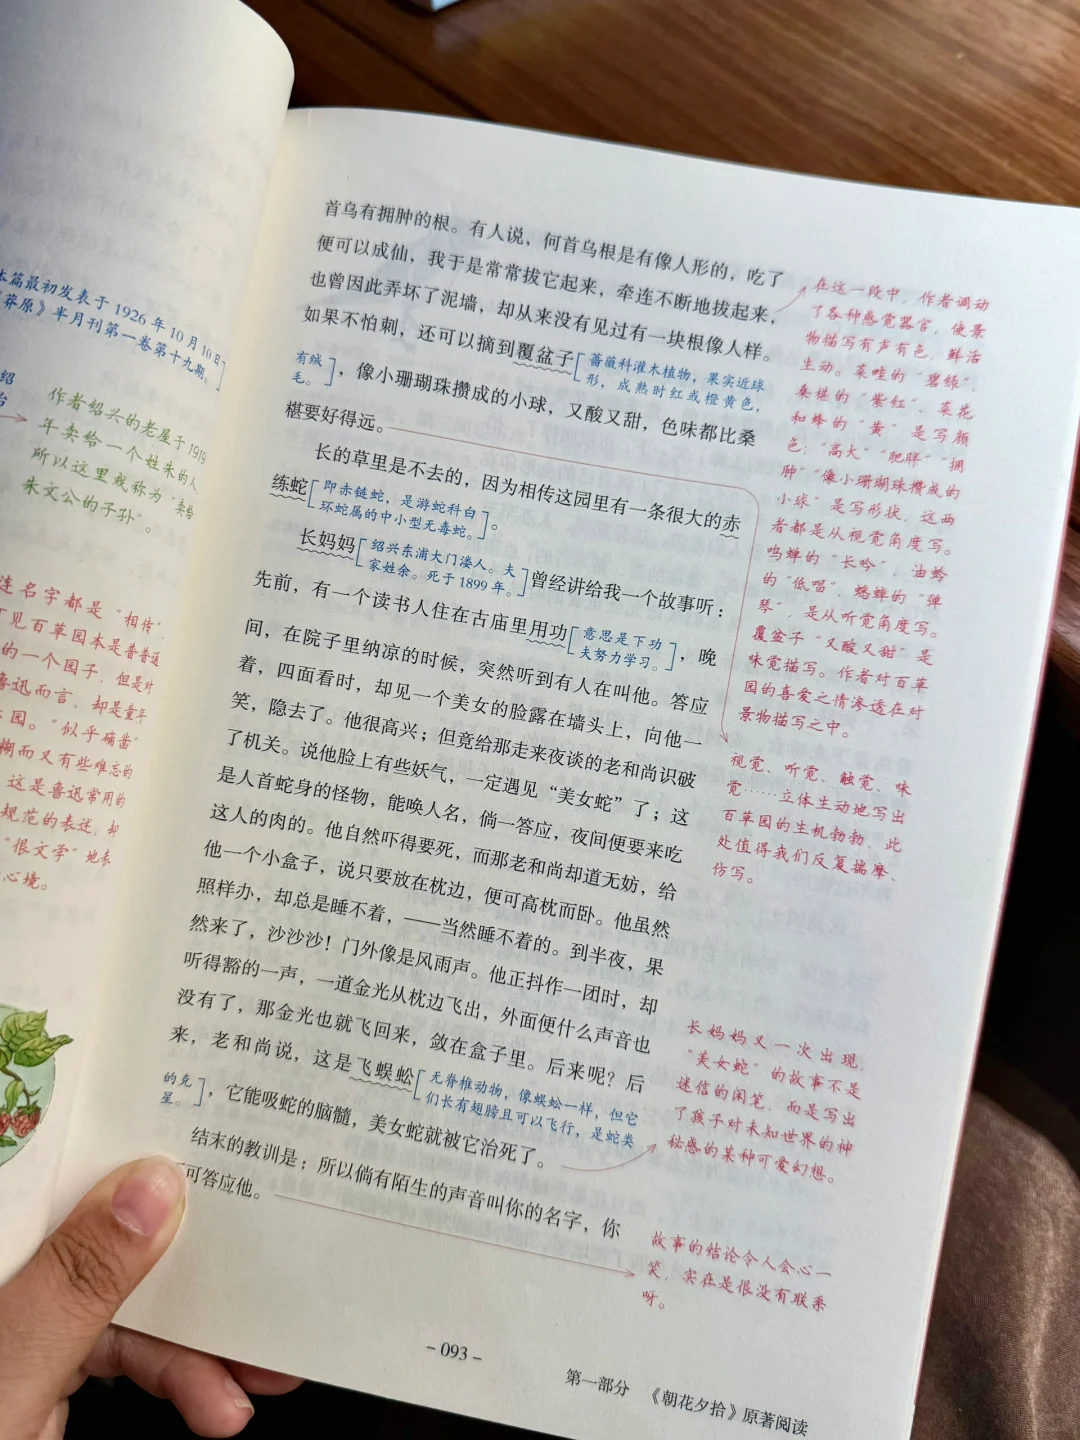 本篇最初发表于 1926 年 10 月 10 日
《莽原》半月刊第一卷第十九期。
绍
台
作者绍兴的老屋于 1919
年卖给一个姓朱的人,
所以这里戏称为“卖给
朱文公的子孙”。
连名字都是“相传”,
见百草园本是普普通
的一个园子,但是对
鲁迅而言,却是童年
园。“似乎确凿
糊而又有些难忘的
这是鲁迅常用的
规范的表述,却
“很文学”地表
心境。
首乌有拥肿的根。有人说,何首乌根是有像人形的,吃了
便可以成仙,我于是常常拔它起来,牵连不断地拔起来,
也曾因此弄坏了泥墙,却从来没有见过有一块根像人样。
如果不怕刺,还可以摘到覆盆子[蔷薇科灌木植物,果实近球
形,成熟时红或橙黄色,
有绒
毛。],像小珊瑚珠攒成的小球,又酸又甜,色味都比桑
椹要好得远。
长的草里是不去的,因为相传这园里有一条很大的赤
练蛇[即赤链蛇,是游蛇科白
环蛇属的中小型无毒蛇。]。
长妈妈[绍兴东浦大门溇人。夫
家姓余。死于 1899 年。]曾经讲给我一个故事听:
先前,有一个读书人住在古庙里用功[意思是下功
夫努力学习。],晚
间,在院子里纳凉的时候,突然听到有人在叫他。答应
着,四面看时,却见一个美女的脸露在墙头上,向他一
笑,隐去了。他很高兴;但竟给那走来夜谈的老和尚识破
了机关。说他脸上有些妖气,一定遇见“美女蛇”了;这
是人首蛇身的怪物,能唤人名,倘一答应,夜间便要来吃
这人的肉的。他自然吓得要死,而那老和尚却道无妨,给
他一个小盒子,说只要放在枕边,便可高枕而卧。他虽然
照样办,却总是睡不着,——当然睡不着的。到半夜,果
然来了,沙沙沙!门外像是风雨声。他正抖作一团时,却
听得豁的一声,一道金光从枕边飞出,外面便什么声音也
没有了,那金光也就飞回来,敛在盒子里。后来呢?后
来,老和尚说,这是飞蜈蚣[无脊椎动物,像蜈蚣一样,但它
们长有翅膀且可以飞行,是蛇类
的克
星。],它能吸蛇的脑髓,美女蛇就被它治死了。
结末的教训是:所以倘有陌生的声音叫你的名字,你
可答应他。
在这一段中,作者调动
了各种感觉器官,使景
物描写有声有色,鲜活
生动。菜畦的“碧绿”、
桑椹的“紫红”、菜花
和蜂的“黄”是写颜
色;“高大”“肥胖”“拥
肿”“像小珊瑚珠攒成的
小球”是写形状,这两
者都是从视觉角度写。
鸣蝉的“长吟”,油蛉
的“低唱”,蟋蟀的“弹
琴”,是从听觉角度写。
覆盆子“又酸又甜”是
味觉描写。作者对百草
园的喜爱之情渗透在对
景物描写之中。
视觉、听觉、触觉、味
觉……立体生动地写出
百草园的生机勃勃,此
处值得我们反复揣摩、
仿写。
长妈妈又一次出现,
“美女蛇”的故事不是
迷信的闲笔,而是写出
了孩子对未知世界的神
秘感的某种可爱幻想。
故事的结论令人会心一
笑,实在是很没有联系
呀。
- 093 -
第一部分 《朝花夕拾》原著阅读